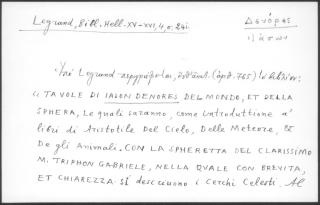 Legrand, Bibl. Hell. XV-XVI, 4, σ. 241.
Δενόρες
Ἰάσων
Legrand (ἀρ. 765) τὸ βιβλίον:
"TAVOLE DI IASON DENORES DEL MONDO, ET DELLA
SPHERA, Le quali saranno, come introduttione a'
libri di Aristotile Del Cielo, Delle Meteore, &
De gli Animali. CON LA SPHERETTA DEL CLARISSIMO
M. TRIPHON GABRIELE, NELLA QVALE CON BREVITA,
ET CHIAREZZA SI descriuono i Cerchi Celesti. Al